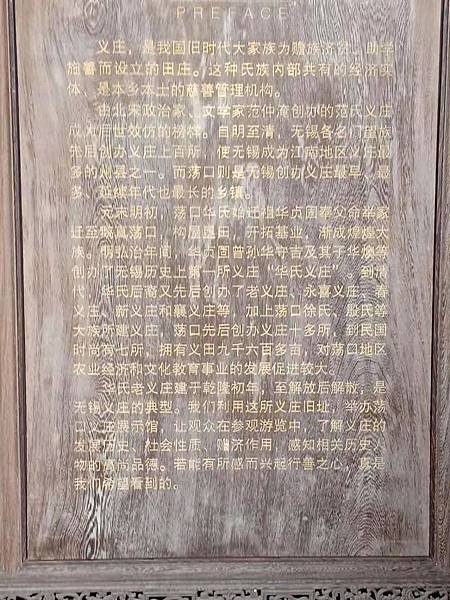 PREFACE
义庄，是我国旧时代大家族为赡族济贫、助学
施善而设立的田庄。这种氏族内部共有的经济实
体，是本乡本土的慈善管理机构。
由北宋政治家、文学家范仲淹创办的范氏义庄
成为后世效仿的榜样。自明至清，无锡各名门望族
先后创办义庄上百所，使无锡成为江南地区义庄最
多的州县之一。而荡口则是无锡创办义庄最早、最
多、延续年代也最长的乡镇。
元末明初，荡口华氏始迁祖华贞固奉父命举家
迁至鹅真荡口，构屋垦田，开拓基业，渐成煌煌大
族。明弘治年间，华贞固曾孙华守吉及其子华燧等
创办了无锡历史上第一所义庄“华氏义庄”。到清
代，华氏后裔又先后创办了老义庄、永喜义庄、春
义庄、新义庄和襄义庄等，加上荡口徐氏、殷氏等
大族所建义庄，荡口先后创办义庄十多所，到民国
时尚有七所，拥有义田九千六百多亩，对荡口地区
农业经济和文化教育事业的发展促进较大。
华氏老义庄建于乾隆初年，至解放后解散，是
无锡义庄的典型。我们利用这所义庄旧址，举办荡
口义庄展示馆，让观众在参观游览中，了解义庄的
发展历史、社会性质、赡济作用，感知相关历史人
物的高尚品德。若能有所感而兴起行善之心，真是
我们希望看到的。